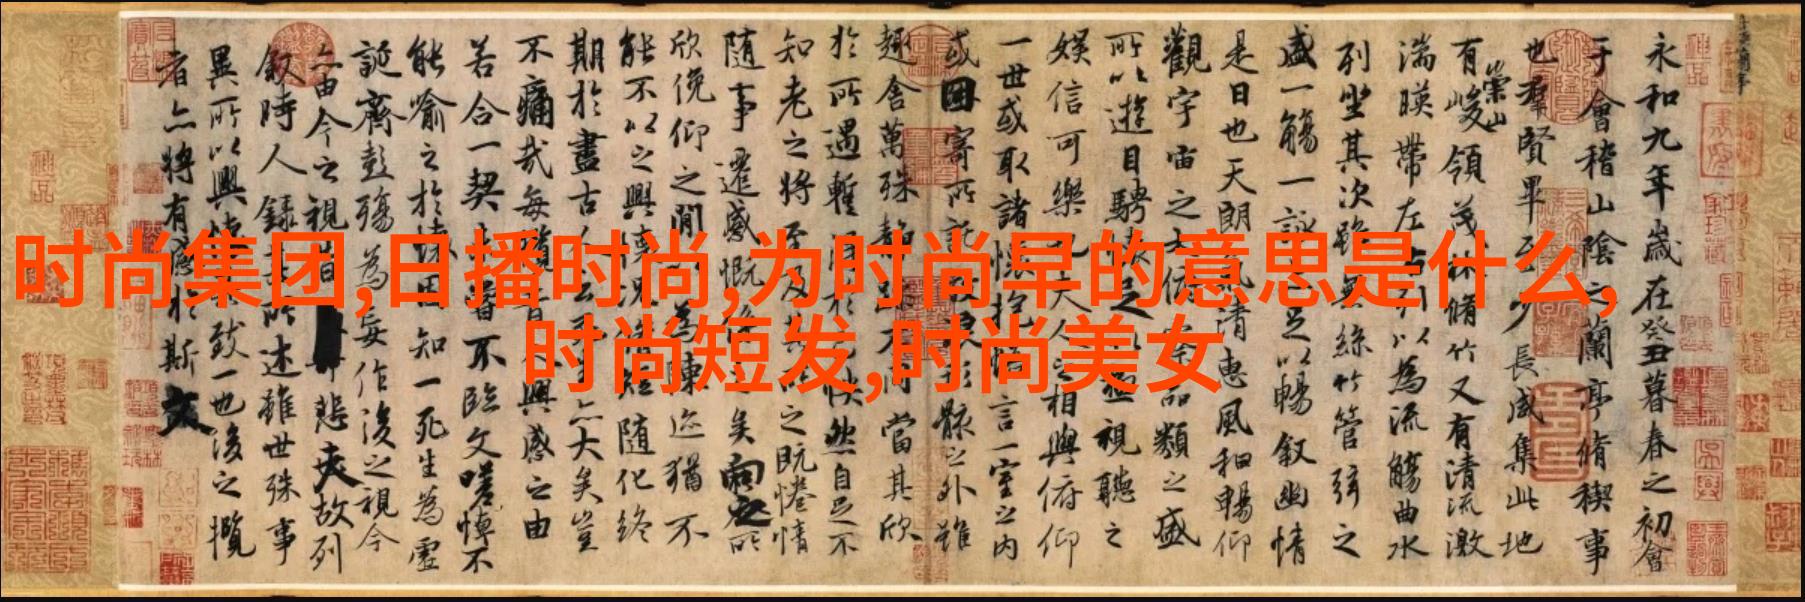 时尚集团,日播时尚,为时尚早的意思是什么,
时尚短发,时尚美女
永和九年歲在癸丑暮春之初會
于會稽山陰之蘭亭脩稧事
也羣賢畢至少長咸集此地
有崇山峻領茂林脩竹又有清流激
湍暎帶左右引以為流觴曲水
列坐其次雖無絲竹管弦之
盛一觴一詠亦足以暢叙幽情
是日也天朗氣清惠風和暢仰
觀宇宙之大俯察品類之盛
所以遊目騁懷足以極視聽之
娛信可樂也夫人之相與俯仰
一世或取諸懷抱悟言一室之內
或因寄所託放浪形骸之外雖
趣舍萬殊靜躁不同當其欣
於所遇暫得於己怏然自足不
知老之將至及其所之既惓情
隨事遷感慨係之矣向之所
欣俛仰之閒以為陳迹猶不
能不以之興懷況脩短隨化終
期於盡古人云死生亦大矣豈
不痛哉每攬昔人興感之由
若合一契未嘗不臨文嗟悼不
能喻之於懷固知一死生為虛
誕齊彭殤為妄作後之視今
亦由今之視昔悲夫故列
叙時人錄其所述雖世殊事
異所以興懷其致一也後之攬
者亦將有感於斯文